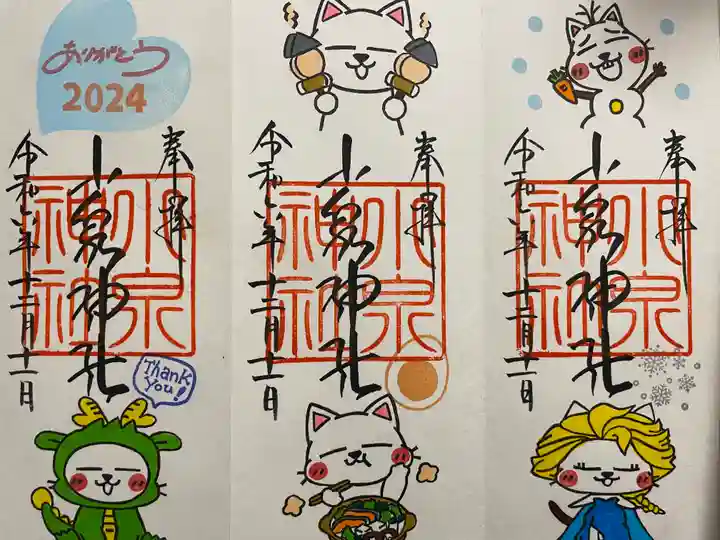 ありがとう
2024
奉拝
小泉神社
令和六年十二月十一日
小泉
神社
Thank
You!
奉拝
小泉神社
令和六年十二月十一日
小泉
神社
奉拝
小泉神社
令和六年十二月十一日
小泉
神社